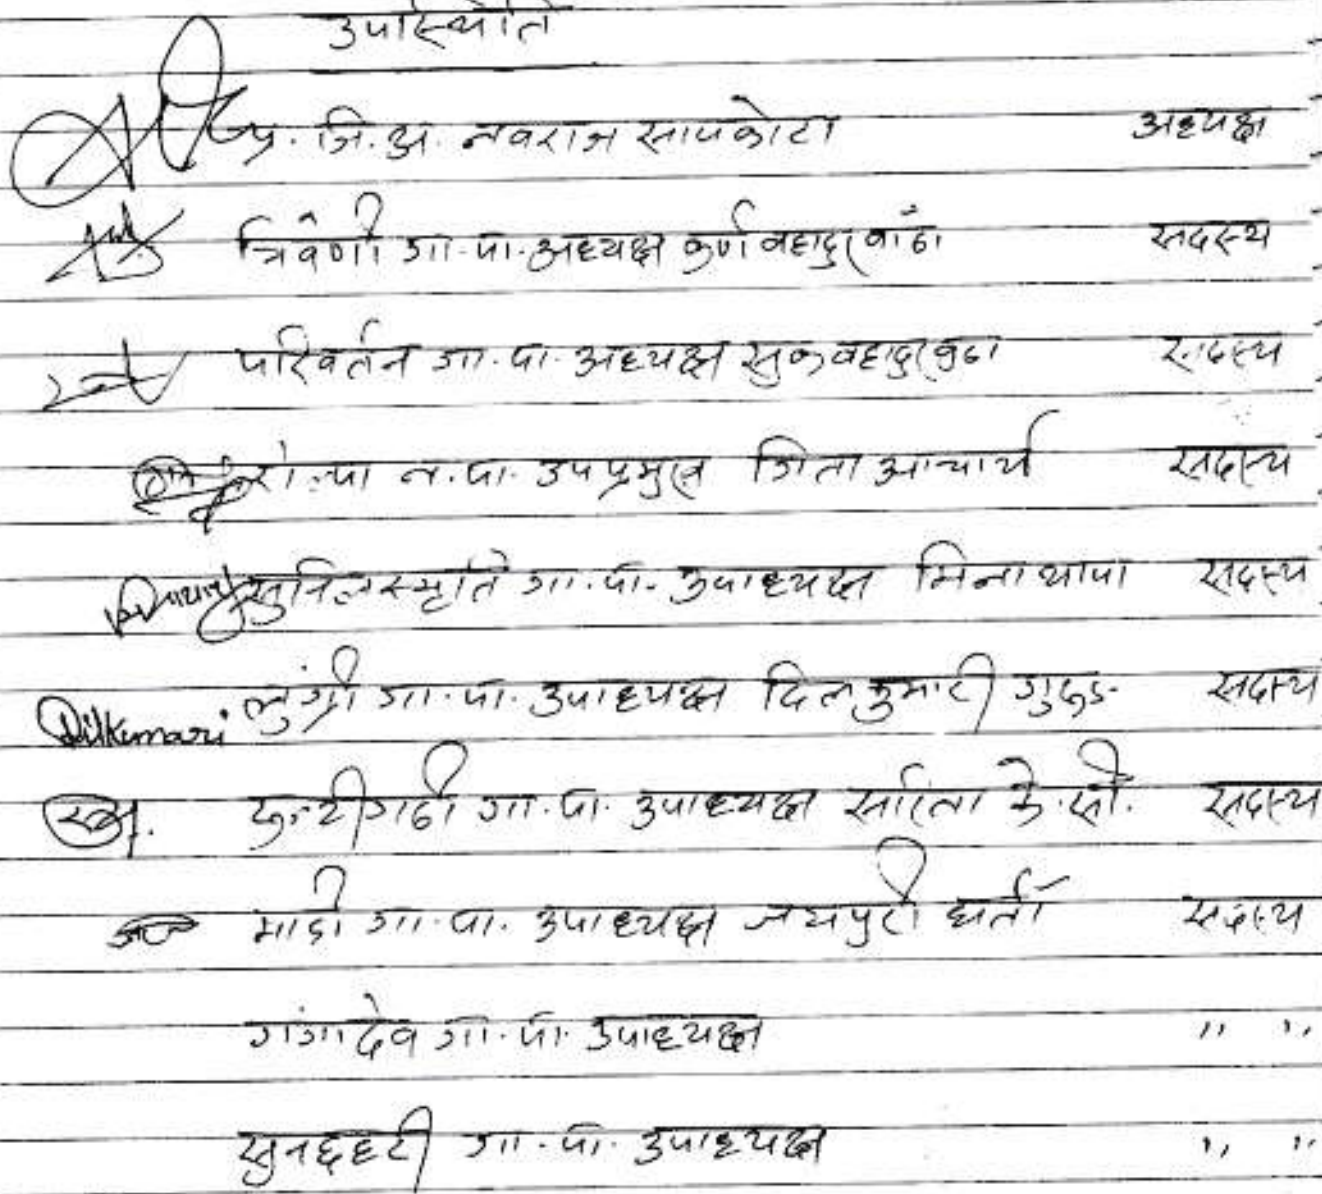 उपस्थिति
प्र. जि. अ. नवराज सापकोटा अध्यक्ष
त्रिवेणी गा. पा. अध्यक्ष कुर्ण बहादुर सदस्य
परिवर्तन गा. पा. अध्यक्ष सुक बहादुर बुढा सदस्य
न. पा. उपप्रमुख गिता आचार्य सदस्य
सुनिलस्मृति गा. पा. उपाध्यक्ष मिना थापा सदस्य
Dilkumari लुंग्री गा. पा. उपाध्यक्ष दिलकुमारी गुरुङ सदस्य
रुन्टीगढी गा. पा. उपाध्यक्ष सरिता के. सी. सदस्य
माडी गा. पा. उपाध्यक्ष जयपुरी घर्ती सदस्य
गंगादेव गा. पा. उपाध्यक्ष " "
सुनछहरी गा. पा. उपाध्यक्ष " "